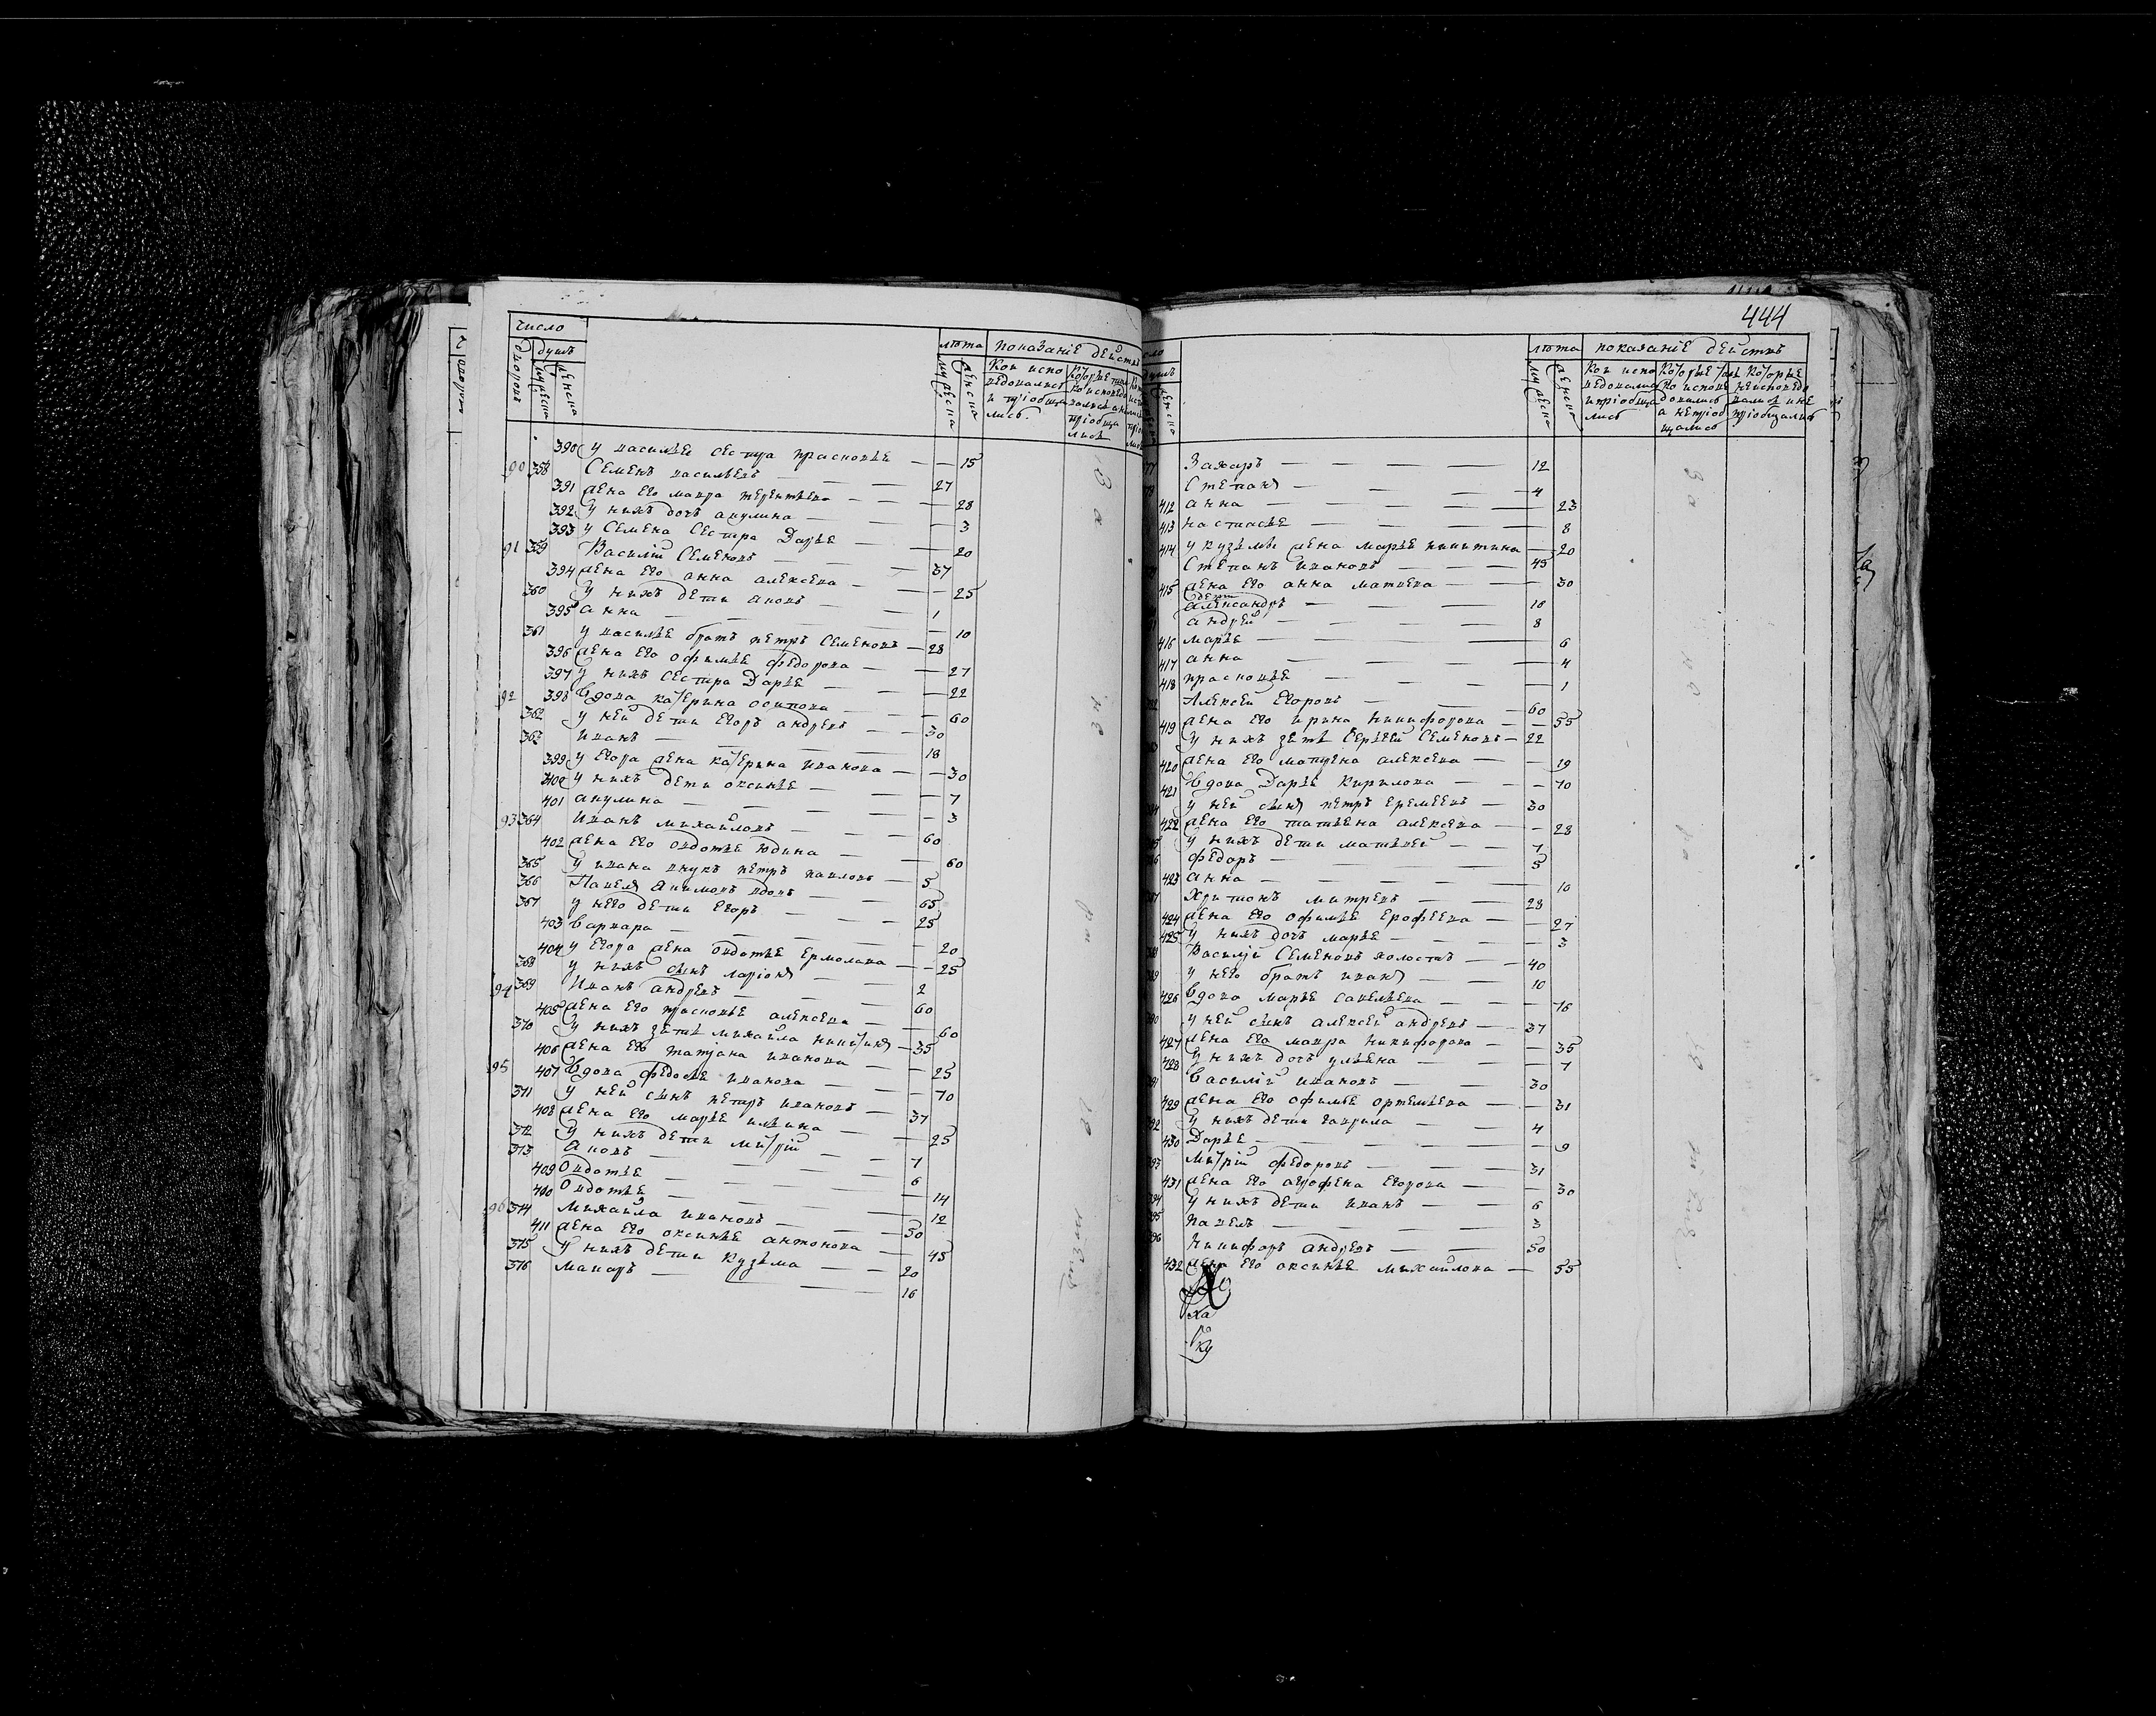 число
дворовъ
душъ
мужеска
женска
лѣта
мужеска
женска
показанiе действъ
Кои испо
ведовалис
и прiобща
лись
390 у василье сестра прасковье — — 15
90 358 Семенъ васильевъ — — 27
391 жена его мавра терентьева — — 28
392 у нихъ дочь акулина — — 3
393 у Семена Сестра Дарье — — 20
91 359 Василiй Семеновъ — — 37
394 жена его анна алексева — — 25
360 у нихъ дети аковъ — — 1
395 анна — — 10
361 у василье братъ петръ Семеновъ — 28
396 жена его офимье федорова — — 27
397 у нихъ сестра Дарье — — 22
92 398 вдова катерина осипова — — 60
362 у ней дети егоръ андревъ — — 30
363 иванъ — — 18
399 у егора жена катерина иванова — — 30
400 у нихъ дети оксинье — — 7
401 акулина — — 3
93 364 Иванъ михайловъ — — 60
402 жена его овдотье юдина — — 60
365 у ивана внукъ петръ павловъ — 5
366 Павелъ Акимовъ вдовъ — — 65
367 у него дети егоръ — — 25
403 варвара — — 20
404 у егора жена овдотье ермолава — — 25
368 у нихъ сынъ ларiонъ — — 2
94 369 Иванъ андревъ — — 60
405 жена его прасковье алексева — 60
370 у нихъ зеть михайла никитинъ — 35
406 жена его татjана иванова — — 25
95 407 вдова федосье иванова — — 70
371 у ней сынъ петръ ивановъ — 37
408 жена его марье ильина — — 25
372 у нихъ дети митрiй — — 7
373 Аковъ — — 6
409 Овдотье — — 14
410 Овдотье — — 12
96 374 Михайла ивановъ — — 50
411 жена его оксинье антонова — 45
375 у нихъ дети кузьма — — 20
376 макаръ — — 16
444
лѣта
мужеска
женска
показанiе действъ
Кои испо
ведовалис
и прiобща
лись
Которые
но испове
довались
а не прiоб
щались
Которые
не испове
дались и не
прiобщались
Захаръ — — 12
Степанъ — — 4
412 анна — — 23
413 настасье — — 8
414 у кузьмы жена марье никитина — 20
Степанъ ивановъ — — 45
415 жена его анна матвева — — 30
дети
александръ — — 10
андрей — — 8
416 марье — — 6
417 анна — — 4
418 прасковье — — 1
Алексей Егоровъ — — 60
419 жена его ирина никифорова — — 55
у нихъ зеть Сергей Семеновъ — 22
420 жена его матрена алексева — — 19
421 вдова Дарье Кирилова — — 70
у ней сынъ петръ еремеевъ — 30
422 жена его татьена алексева — — 28
у нихъ дети матвей — — 7
федоръ — — 5
423 анна — — 10
Харитонъ митревъ — — 28
424 жена его офимье ерофеева — — 27
425 у нихъ дочь марье — — 3
Василiй Семеновъ холостъ — — 40
у него братъ иванъ — — 10
426 вдова марье савельева — — 76
у ней сынъ алексей андревъ — 37
427 жена его мавра никифорова — — 35
428 у нихъ дочь ульена — — 7
Василiй ивановъ — — 30
429 жена его офимье ортемьева — — 31
у нихъ дети гаврила — — 4
430 Дарье — — 9
Митрiй федоровъ — — 31
431 жена его аграфена егорова — — 30
у нихъ дети иванъ — — 6
Павелъ — — 3
Никифоръ андревъ — — 50
432 жена его оксинье михайлова — 55